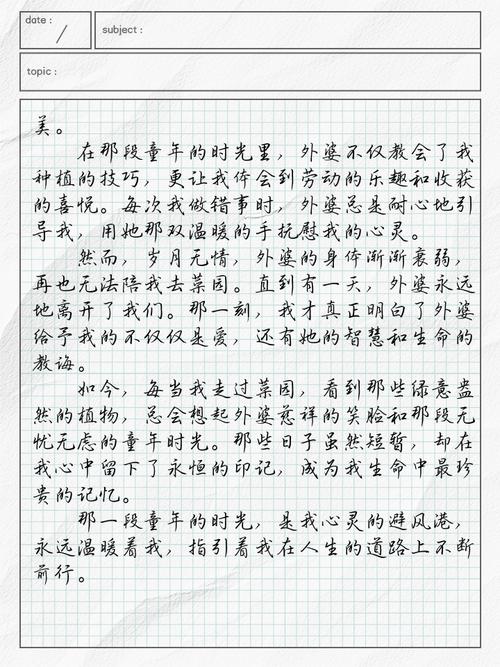 date :
subject :
topic :
美。
在那段童年的时光里，外婆不仅教会了我
种植的技巧，更让我体会到劳动的乐趣和收获
的喜悦。每次我做错事时，外婆总是耐心地引
导我，用她那双温暖的手抚慰我的心灵。
然而，岁月无情，外婆的身体渐渐衰弱，
再也无法陪我去菜园。直到有一天，外婆永远
地离开了我们。那一刻，我才真正明白了外婆
给予我的不仅仅是爱，还有她的智慧和生命的
教诲。
如今，每当我走过菜园，看到那些绿意盎
然的植物，总会想起外婆慈祥的笑脸和那段无
忧无虑的童年时光。那些日子虽然短暂，却在
我心中留下了永恒的印记，成为我生命中最珍
贵的记忆。
那一段童年的时光，是我心灵的避风港，
永远温暖着我，指引着我在人生的道路上不断
前行。